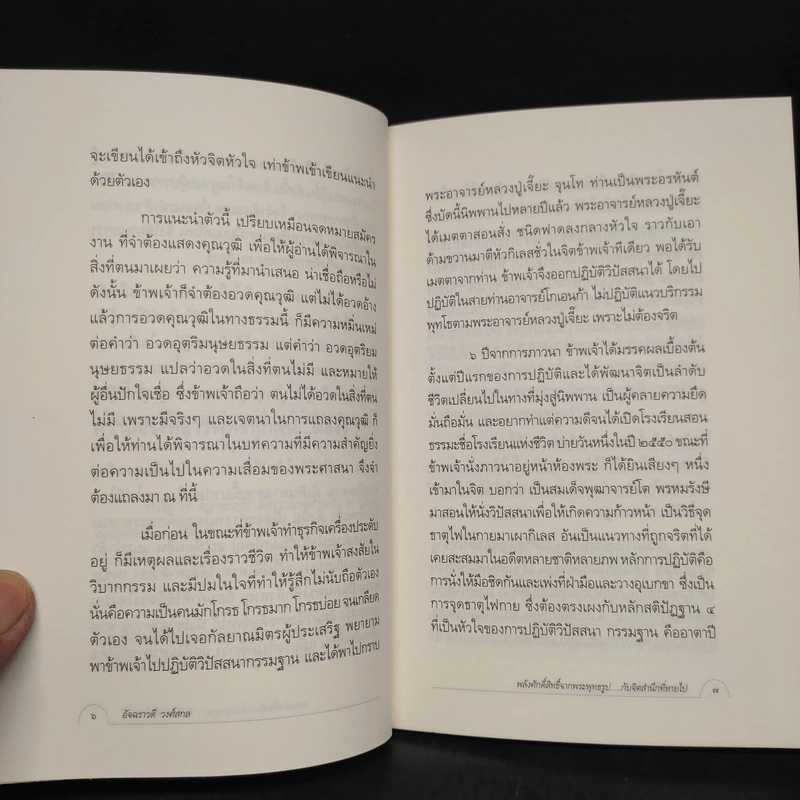 จะเขียนได้เข้าถึงหัวจิตหัวใจ เท่าข้าพเจ้าเขียนแนะนำ
ด้วยตัวเอง
การแนะนำตัวนี้ เปรียบเหมือนจดหมายสมัคร
งาน ที่จำต้องแสดงคุณวุฒิ เพื่อให้ผู้อ่านได้พิจารณาใน
สิ่งที่ตนมาเผยว่า ความรู้ที่มานำเสนอ น่าเชื่อถือหรือไม่
ดังนั้น ข้าพเจ้าก็จำต้องอวดคุณวุฒิ แต่ไม่ได้อวดอ้าง
แล้วการอวดคุณวุฒิในทางธรรมนี้ ก็มีความหมิ่นเหม่
ต่อคำว่า อวดอุตริมนุษยธรรม แต่คำว่า อวดอุตริย
มนุษยธรรม แปลว่าอวดในสิ่งที่ตนไม่มี และหมายให้
ผู้อื่นปักใจเชื่อ ซึ่งข้าพเจ้าถือว่า ตนไม่ได้อวดในสิ่งที่ตน
ไม่มี เพราะมีจริงๆ และเจตนาในการแถลงคุณวุฒิ ก็
เพื่อให้ท่านได้พิจารณาในบทความที่มีความสำคัญยิ่ง
ต่อความเป็นไปในความเสื่อมของพระศาสนา จึงจำ
ต้องแถลงมา ณ ที่นี้
เมื่อก่อน ในขณะที่ข้าพเจ้าทำธุรกิจเครื่องประดับ
อยู่ ก็มีเหตุผลและเรื่องราวชีวิต ทำให้ข้าพเจ้าสงสัยใน
วิบากกรรม และมีปมในใจที่ทำให้รู้สึกไม่นับถือตัวเอง
นั่นคือความเป็นคนมักโกรธ โกรธมาก โกรธบ่อย จนเกลียด
ตัวเอง จนได้ไปเจอกัลยาณมิตรผู้ประเสริฐ พยายาม
พาข้าพเจ้าไปปฏิบัติวิปัสสนากรรมฐาน และได้พาไปกราบ
๖ อัจฉราวดี วงศ์สกล
พระอาจารย์หลวงปู่เจี๊ยะ จุนโท ท่านเป็นพระอรหันต์
ซึ่งบัดนี้นิพพานไปหลายปีแล้ว พระอาจารย์หลวงปู่เจี๊ยะ
ได้เมตตาสอนสั่ง ชนิดฟาดลงกลางหัวใจ ราวกับเอา
ด้ามขวานมาตีหัวกิเลสชั่วในจิตข้าพเจ้าทีเดียว พอได้รับ
เมตตาจากท่าน ข้าพเจ้าจึงออกปฏิบัติวิปัสสนาได้ โดยไป
ปฏิบัติในสายท่านอาจารย์โกเอนก้า ไม่ปฏิบัติแนวบริกรรม
พุทโธตามพระอาจารย์หลวงปู่เจี๊ยะ เพราะไม่ต้องจริต
๖ ปีจากการภาวนา ข้าพเจ้าได้มรรคผลเบื้องต้น
ตั้งแต่ปีแรกของการปฏิบัติและได้พัฒนาจิตเป็นลำดับ
ชีวิตเปลี่ยนไปในทางที่มุ่งสู่นิพพาน เป็นผู้คลายความยึด
มั่นถือมั่น และอยากทำแต่ความดีจนได้เปิดโรงเรียนสอน
ธรรมะชื่อโรงเรียนแห่งชีวิต บ่ายวันหนึ่งในปี ๒๕๕๐ ขณะที่
ข้าพเจ้านั่งภาวนาอยู่หน้าห้องพระ ก็ได้ยินเสียงๆ หนึ่ง
เข้ามาในจิต บอกว่า เป็นสมเด็จพุฒาจารย์โต พรหมรังษี
มาสอนให้นั่งวิปัสสนาเพื่อให้เกิดความก้าวหน้า เป็นวิธีจุด
ธาตุไฟในกายมาเผากิเลส อันเป็นแนวทางที่ถูกจริตที่ได้
เคยสะสมมาในอดีตหลายชาติหลายภพ หลักการปฏิบัติคือ
การนั่งให้มือชิดกันและเพ่งที่ฝ่ามือและวางอุเบกขา ซึ่งเป็น
การจุดธาตุไฟกาย ซึ่งต้องตรงเผงกับหลักสติปัฏฐาน ๔
ที่เป็นหัวใจของการปฏิบัติวิปัสสนา กรรมฐาน คืออาตาปี
พลังศักดิ์สิทธิ์จากพระพุทธรูป.....กับจิตสำนึกที่หายไป ๗